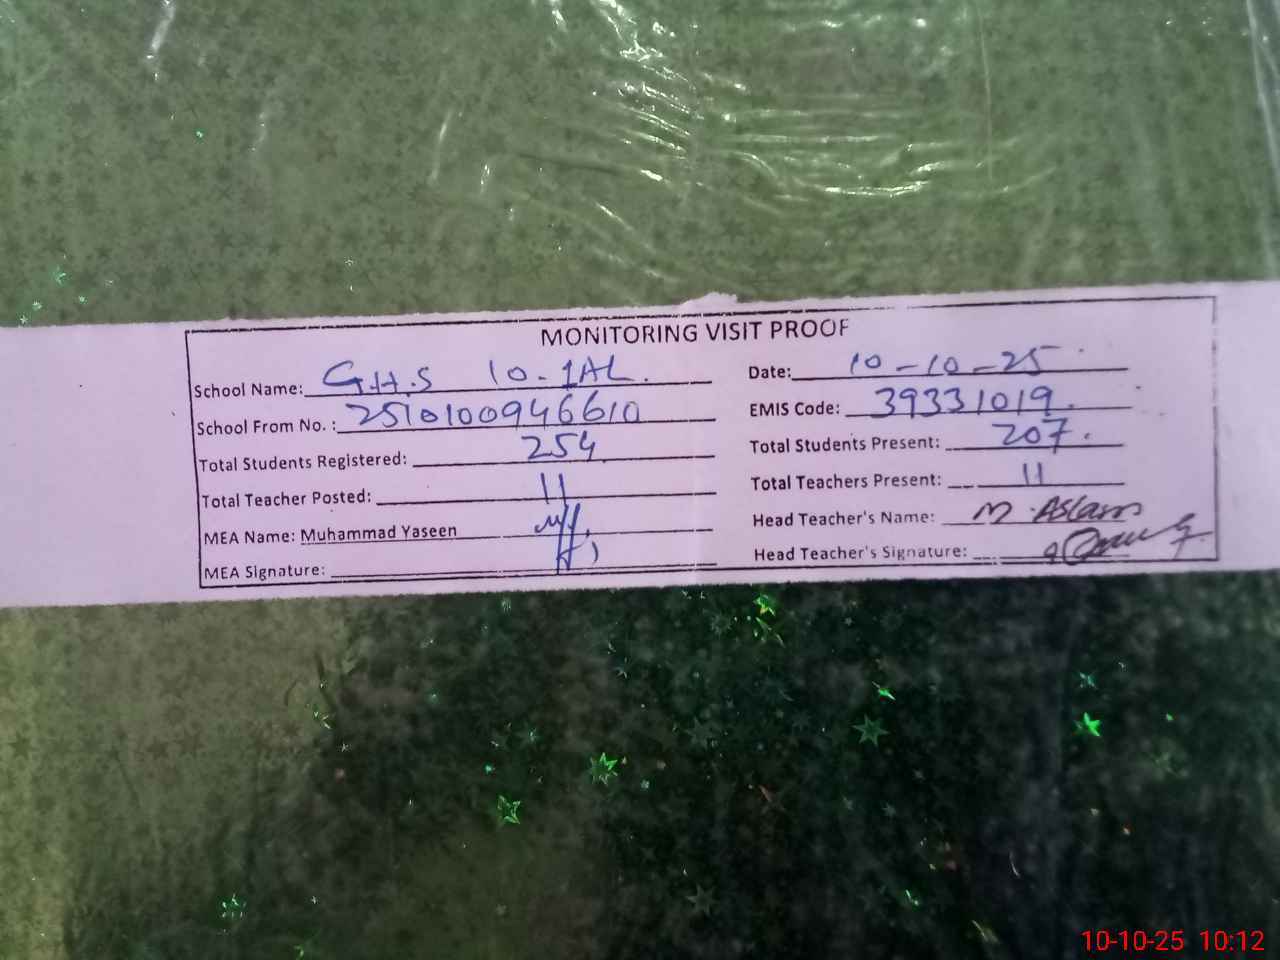 MONITORING VISIT PROOF
School Name: G.H.S 10-1AL.
Date: 10-10-25
School From No. : 2510100946610
EMIS Code: 39331019.
Total Students Registered: 254
Total Students Present: 207.
Total Teacher Posted: 11
Total Teachers Present: 11
MEA Name: Muhammad Yaseen
Head Teacher's Name: M. Aslam
MEA Signature:
Head Teacher's Signature:
10-10-25 10:12